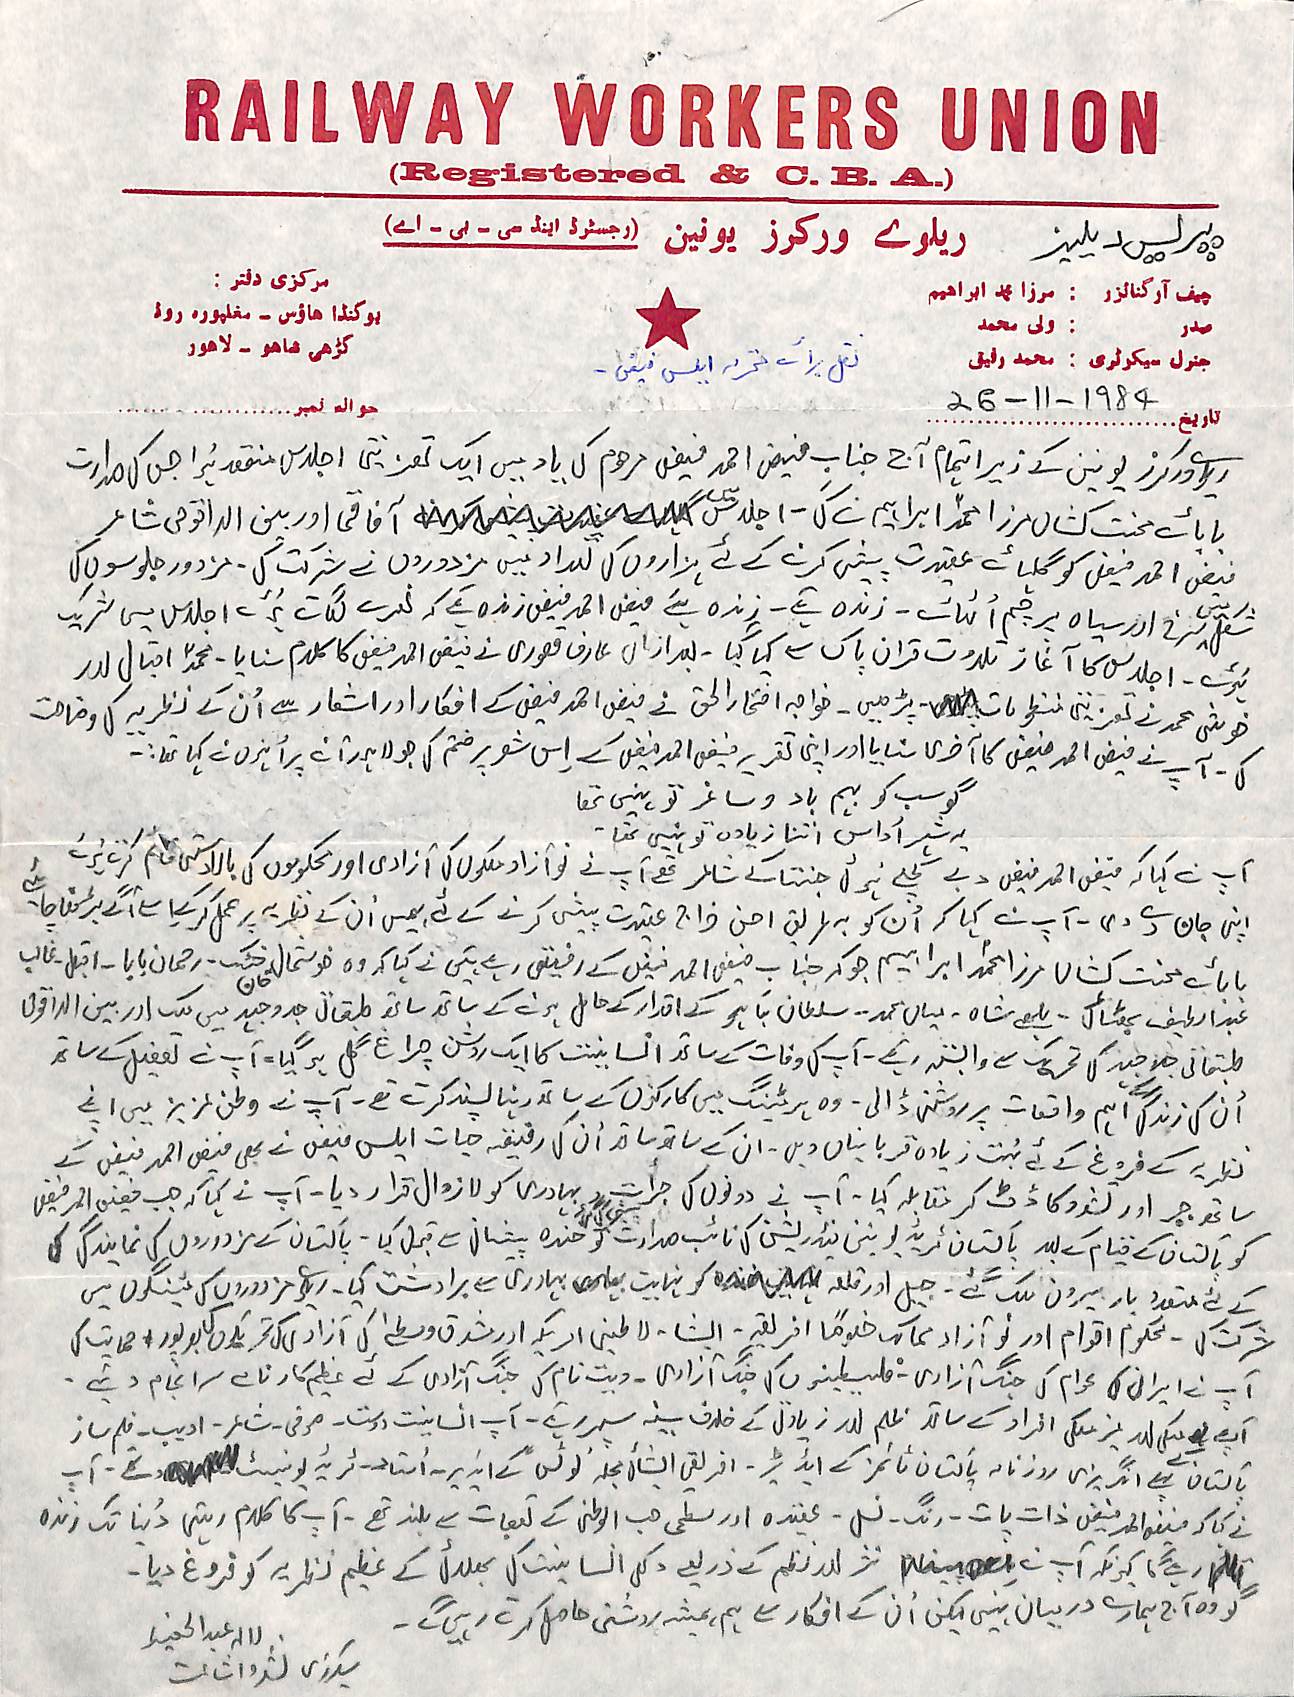 RAILWAY WORKERS UNION
(Registered & C. B. A.)
پریس ریلیز
ریلوے ورکرز یونین (رجسٹرڈ اینڈ سی - بی - اے)
چیف آرگنائزر : مرزا محمد ابراهیم
صدر : ولی محمد
جنرل سیکرٹری : محمد رفیق
مرکزی دفتر :
یوگنڈا هاؤس - مغلپورہ روڈ
گڑھی شاهو - لاهور
نقل برائے محترمہ ایلس فیض -
تاریخ 26-11-1984
حوالہ نمبر
ریلوے ورکرز یونین کے زیر اہتمام آج جناب فیض احمد فیض مرحوم کی یاد میں ایک تعزیتی اجلاس منعقد ہُوا جس کی صدارت
بابائے محنت کشاں مرزا محمد ابراہیم نے کی - اجلاس میں آفاقی اور بین الاقوامی شاعر
فیض احمد فیض کو گلہائے عقیدت پیش کرنے کے لئے ہزاروں کی تعداد میں مزدوروں نے شرکت کی - مزدور جلوسوں کی
شکل میں سُرخ اور سیاہ پرچم اُٹھائے - زندہ ہے - زندہ ہے فیض احمد فیض زندہ ہے کے نعرے لگاتے ہُوئے اجلاس میں شریک
ہُوئے - اجلاس کا آغاز تلاوت قرآن پاک سے کیا گیا - بعد ازاں عارف قصوری نے فیض احمد فیض کا کلام سنایا - محمد اقبال اور
خوشی محمد نے تعزیتی منظومات پڑھیں - خواجہ افتخار الحق نے فیض احمد فیض کے افکار اور اشعار سے اُن کے نظریہ کی وضاحت
کی - آپ نے فیض احمد فیض کا آخری سنایا اور اپنی تقریر فیض احمد فیض کے اِس شعر پر ختم کی جو لاہور آنے پر اُنہوں نے کہا تھا :-
گو سب کو بہم باد و ساغر تو نہیں تھا
یہ شہر اُداس اتنا زیادہ تو نہیں تھا
آپ نے کہا کہ فیض احمد فیض دبے کچلے ہُوئی جنتا کے شاعر تھے آپ نے نو آزاد ملکوں کی آزادی اور محکوموں کی بالادستی قائم کرتے ہُوئے
اپنی جان دے دی - آپ نے کہا کہ اُن کو بہ طریق احسن خراج عقیدت پیش کرنے کے لئے ہمیں اُن کے نظریہ پر عمل کر کے اسے آگے بڑھانا چاہئیے
بابائے محنت کشاں مرزا محمد ابراہیم جو کہ جناب فیض احمد فیض کے رفیق رہے ہیں نے کہا کہ وہ خوشحال خان خٹک - رحمان بابا - اقبال - غالب
عبدالطیف بھٹائی - بلھے شاہ - میاں محمد - سلطان باہو کے اقدار کے حامل ہونے کے ساتھ ساتھ طبقاتی جدوجہد میں ملک اور بین الاقوامی
طبقاتی جدوجہد کی تحریک سے وابستہ رہے - آپ کی وفات کے ساتھ انسانیت کا ایک روشن چراغ گُل ہو گیا - آپ نے تفصیل کے ساتھ
اُن کی زندگی کے اہم واقعات پر روشنی ڈالی - وہ ہر میٹنگ میں کارکنوں کے ساتھ رہنا پسند کرتے تھے - آپ نے وطن عزیز میں اپنے
نظریہ کے فروغ کے لئے بہت زیادہ قربانیاں دیں - ان کے ساتھ ساتھ اُن کی رفیقہ حیات ایلس فیض نے بھی فیض احمد فیض کے
ساتھ جبر اور تشدد کا ڈٹ کر مقابلہ کیا - آپ نے دونوں کی جرأت و بہادری کو لازوال قرار دیا - آپ نے کہا کہ جب فیض احمد فیض
کو پاکستان کے قیام کے بعد پاکستان ٹریڈ یونین فیڈریشن کی نائب صدارت کو خندہ پیشانی سے قبول کیا - پاکستان کے مزدوروں کی نمائندگی
کے لئے متعدد بار بیرون ملک گئے - جیل اور قلعہ کو نہایت بہادری سے برداشت کیا - ریلوے مزدوروں کی میٹنگوں میں
شرکت کی - محکوم اقوام اور نو آزاد ممالک خصوصاً افریقہ - ایشیا - لاطینی امریکہ اور مشرق وسطےٰ کی آزادی کی تحریکوں کی بھرپور حمایت کی
آپ نے ایران کی عوام کی جنگ آزادی - فلسطینیوں کی جنگ آزادی - ویت نام کی جنگ آزادی کے لئے عظیم کارنامے سر انجام دئیے -
آپ ملکی اور غیر ملکی افراد کے ساتھ ظلم اور زیادتی کے خلاف سینہ سپر رہے - آپ انسانیت دوست - صوفی - شاعر - ادیب - فلم ساز
پاکستان کے انگریزی روزنامہ پاکستان ٹائمز کے ایڈیٹر - افریقی ایشیائی مجلہ لوٹس کے ایڈیٹر - اُستاد - ٹریڈ یونینسٹ تھے - آپ
نے کہا کہ فیض احمد فیض ذات پات - رنگ - نسل - عقیدہ اور سطحی حب الوطنی کے تعصبات سے بلند تھے - آپ کا کلام رہتی دُنیا تک زندہ
رہے گا کیونکہ آپ نے نثر اور نظم کے ذریعے دکھی انسانیت کی بھلائی کے عظیم نظریہ کو فروغ دیا -
گو وہ آج ہمارے درمیان نہیں لیکن اُن کے افکار سے ہم ہمیشہ روشنی حاصل کرتے رہیں گے -
لالہ عبدالحفیظ
سیکرٹری نشر و اشاعت